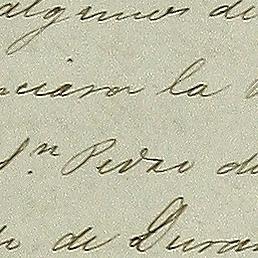 algunos di
nciaron la
Dn Pedro de
de Duran